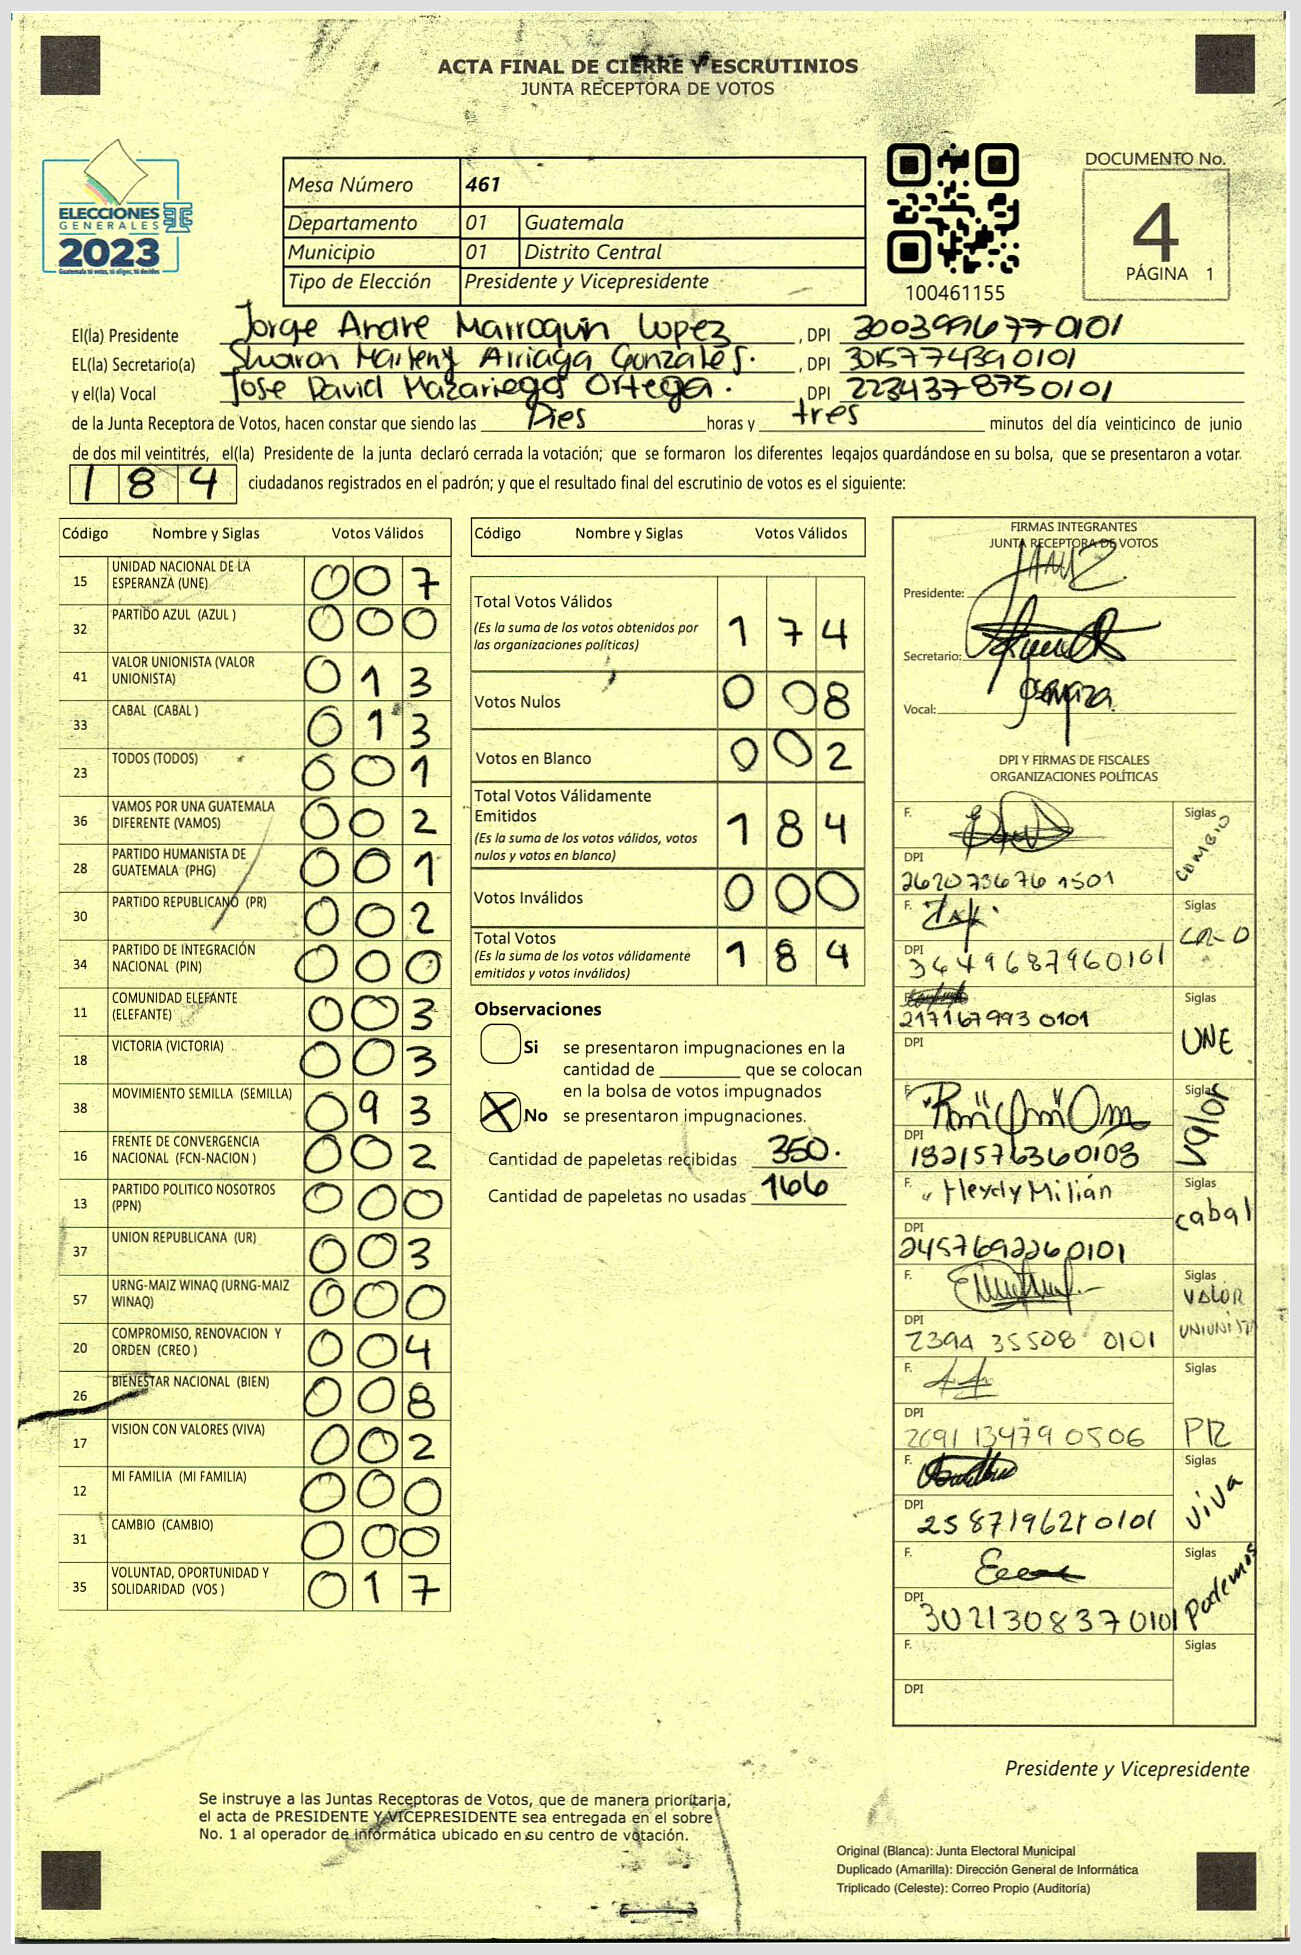 ACTA FINAL DE CIERRE Y ESCRUTINIOS
JUNTA RECEPTORA DE VOTOS
ELECCIONES
GENERALES
2023
Guatemala tú votas, tú eliges, tú decides
Mesa Número 461
Departamento 01 Guatemala
Municipio 01 Distrito Central
Tipo de Elección Presidente y Vicepresidente
100461155
DOCUMENTO No.
4
PÁGINA 1
El(la) Presidente Jorge Andre Marroquin Lopez, DPI 3003996770101
EL(la) Secretario(a) Sharon Marleny Arriaga Gonzales., DPI 3015774390101
y el(la) Vocal Jose David Mazariegos Ortega., DPI 2234378750101
de la Junta Receptora de Votos, hacen constar que siendo las Dies horas y tres minutos del día veinticinco de junio
de dos mil veintitrés, el(la) Presidente de la junta declaró cerrada la votación; que se formaron los diferentes legajos quardándose en su bolsa, que se presentaron a votar
184 ciudadanos registrados en el padrón; y que el resultado final del escrutinio de votos es el siguiente:
Código Nombre y Siglas Votos Válidos
15 UNIDAD NACIONAL DE LA ESPERANZA (UNE) 007
32 PARTIDO AZUL (AZUL ) 000
41 VALOR UNIONISTA (VALOR UNIONISTA) 013
33 CABAL (CABAL ) 013
23 TODOS (TODOS) 001
36 VAMOS POR UNA GUATEMALA DIFERENTE (VAMOS) 002
28 PARTIDO HUMANISTA DE GUATEMALA (PHG) 001
30 PARTIDO REPUBLICANO (PR) 002
34 PARTIDO DE INTEGRACIÓN NACIONAL (PIN) 000
11 COMUNIDAD ELEFANTE (ELEFANTE) 003
18 VICTORIA (VICTORIA) 003
38 MOVIMIENTO SEMILLA (SEMILLA) 093
16 FRENTE DE CONVERGENCIA NACIONAL (FCN-NACION ) 002
13 PARTIDO POLITICO NOSOTROS (PPN) 000
37 UNION REPUBLICANA (UR) 003
57 URNG-MAIZ WINAQ (URNG-MAIZ WINAQ) 000
20 COMPROMISO, RENOVACION Y ORDEN (CREO ) 004
26 BIENESTAR NACIONAL (BIEN) 008
17 VISION CON VALORES (VIVA) 002
12 MI FAMILIA (MI FAMILIA) 000
31 CAMBIO (CAMBIO) 000
35 VOLUNTAD, OPORTUNIDAD Y SOLIDARIDAD (VOS ) 017
Código Nombre y Siglas Votos Válidos
Total Votos Válidos 174
(Es la suma de los votos obtenidos por
las organizaciones políticas)
Votos Nulos 008
Votos en Blanco 002
Total Votos Válidamente
Emitidos 184
(Es la suma de los votos válidos, votos
nulos y votos en blanco)
Votos Inválidos 000
Total Votos 184
(Es la suma de los votos válidamente
emitidos y votos inválidos)
Observaciones
Si se presentaron impugnaciones en la
cantidad de ________ que se colocan
en la bolsa de votos impugnados
X No se presentaron impugnaciones.
Cantidad de papeletas recibidas 350.
Cantidad de papeletas no usadas 166
FIRMAS INTEGRANTES
JUNTA RECEPTORA DE VOTOS
Presidente:
Secretario:
Vocal:
DPI Y FIRMAS DE FISCALES
ORGANIZACIONES POLÍTICAS
F. Siglas
DPI 2620736761501 COMBIO
F. Siglas
DPI 3449687960101
F. Siglas
2171679930101
DPI UNE
F. Siglas
DPI 1821576360108 valor
F. Heydy Milián Siglas
DPI 2457692260101 cabal
F. Siglas
DPI 2394 35508 0101 VALOR UNIUNISTA
F. Siglas
DPI 2691 13479 0506 PR
F. Siglas
DPI 2587196210101 viva
F. Siglas
DPI 3021308370101 Podemos
F. Siglas
DPI
Presidente y Vicepresidente
Se instruye a las Juntas Receptoras de Votos, que de manera prioritaria,
el acta de PRESIDENTE Y VICEPRESIDENTE sea entregada en el sobre
No. 1 al operador de informática ubicado en su centro de votación.
Original (Blanca): Junta Electoral Municipal
Duplicado (Amarilla): Dirección General de Informática
Triplicado (Celeste): Correo Propio (Auditoría)